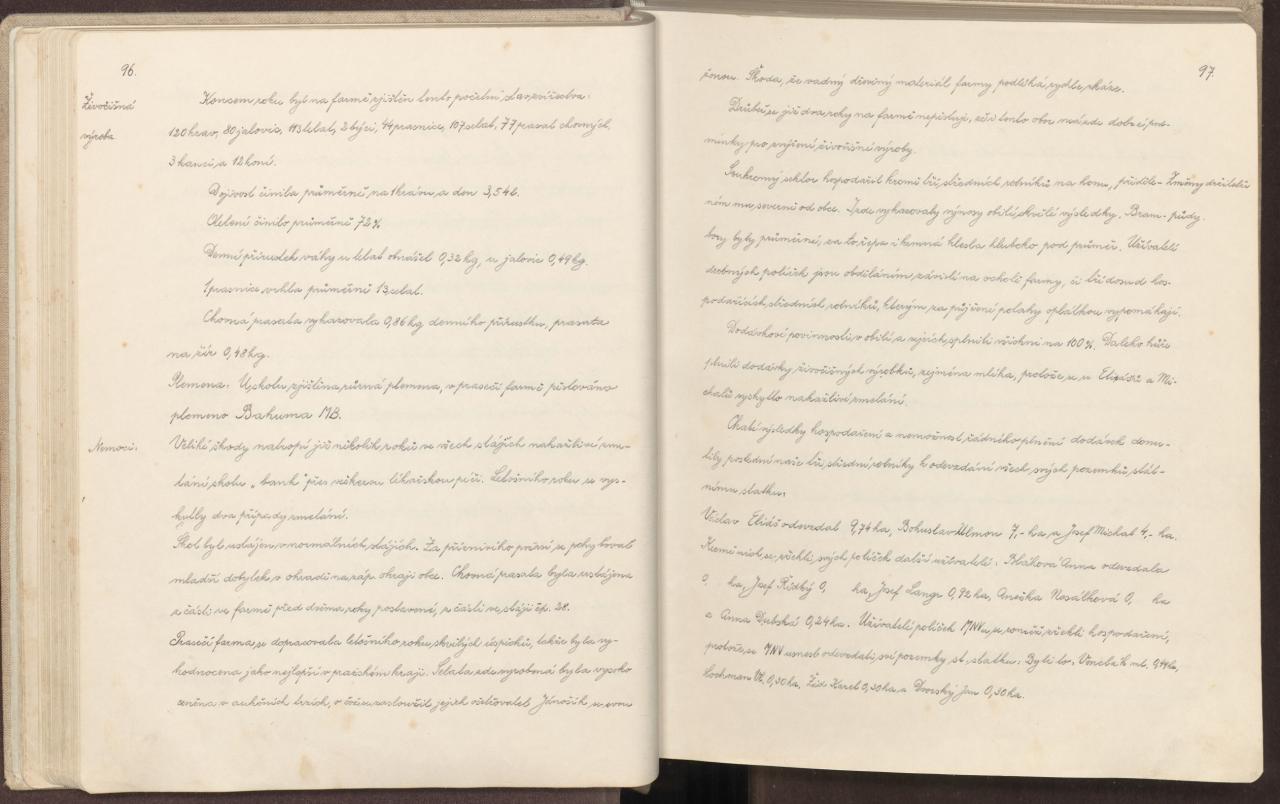 96.
Živočišná
výroba
Koncem roku byl na farmě zjištěn tento početní stav zvířectva:
120 krav, 80 jalovic, 113 telat, 2 býci, 44 prasnic, 107 selat, 77 prasat chovných,
3 kanci a 12 koní.
Dojivost činila průměrně na 1 krávu a den 3,54 l.
Otelení činilo průměrně 72 %
Denní přírustek váhy u telat obnášel 0,32 kg, u jalovic 0,49 kg.
1 prasnice vrhla průměrně 13 selat.
Chovná prasata vykazovala 0,86 kg denního přírustku, prasata
na žír 0,48 kg.
Plemena: U skotu zjištěna různá plemena, v prasečí farmě pěstováno
plemeno Bakuma MB.
Nemoci:
Veliké škody natropí již několik roků ve všech stájích nakažlivé zme-
tání skotu „bank“ přes veškerou lékařskou péči. Letošního roku se vys-
kytly dva případy zmetání.
Skot byl ustájen v normálních stájích. Za příznivého počasí se pohyboval
mladší dobytek v ohradě na záp. okraji obce. Chovná prasata byla ustájena
z části ve farmě před dvěma roky postavené, z části ve stáji čp. 28.
Prasečí farma se dopracovala letošního roku skvělých úspěchů, takže byla vy-
hodnocena jako nejlepší v pražském kraji. Selata zde vyrobená byla vysoko
ceněna v aukčních trzích, o což se zasloužil jejich ošetřovatel Jánošík se svou
97.
ženou. Škoda, že vadný dřevěný materiál farmy podléhá rychle zkáze.
Drůbež se již dva roky na farmě nepěstuje, ač i tento obor má zde dobré pod-
mínky pro zvýšení živočišné výroby.
Změny držitelů
půdy.
Soukromý sektor hospodařil kromě tří středních rolníků na honu, příděle-
ném mu severně od obce. I zde vykazovaly výnosy obilí skvělé výsledky. Bram-
bory byly průměrné, za to řepa i krmná klesla hluboko pod průměr. Uživatelé
drobných políček jsou obděláním závislí na ochotě farmy, či tří dosud hos-
podařících středních rolníků, kterým za půjčení potahy oplátkou vypomáhají.
Dodávkové povinnosti v obilí a vejcích splnili všichni na 100 %. Daleko hůře
plnili dodávky živočišných výrobků, zejména mléka, protože se u Eliášů a Mi-
chalů vyskytlo nakažlivé zmetání.
Chabé výsledky hospodaření a nemožnost řádného plnění dodávek donu-
tily poslední naše tři střední rolníky k odevzdání všech svých pozemků stát-
nímu statku:
Václav Eliáš odevzdal 9,74 ha, Bohuslav Ulmon 7,- ha, a Josef Michal 4,- ha.
Kromě nich se vzdali svých políček další uživatelé: Bláhová Anna odevzdala
0, ha, Josef Řídký 0, ha, Josef Langr 0,92 ha, Anežka Nosálková 0, ha
a Anna Dubská 0,24 ha. Uživatelé políček MNV se rovněž vzdali hospodaření,
protože se MNV usnesl odevzdati své pozemky st. statku: Byli to: Vaneček ml. 0,94 ha,
Kochman Vl. 0,50 ha, Žid Karel 0,50 ha a Dvorský Jan 0,50 ha.